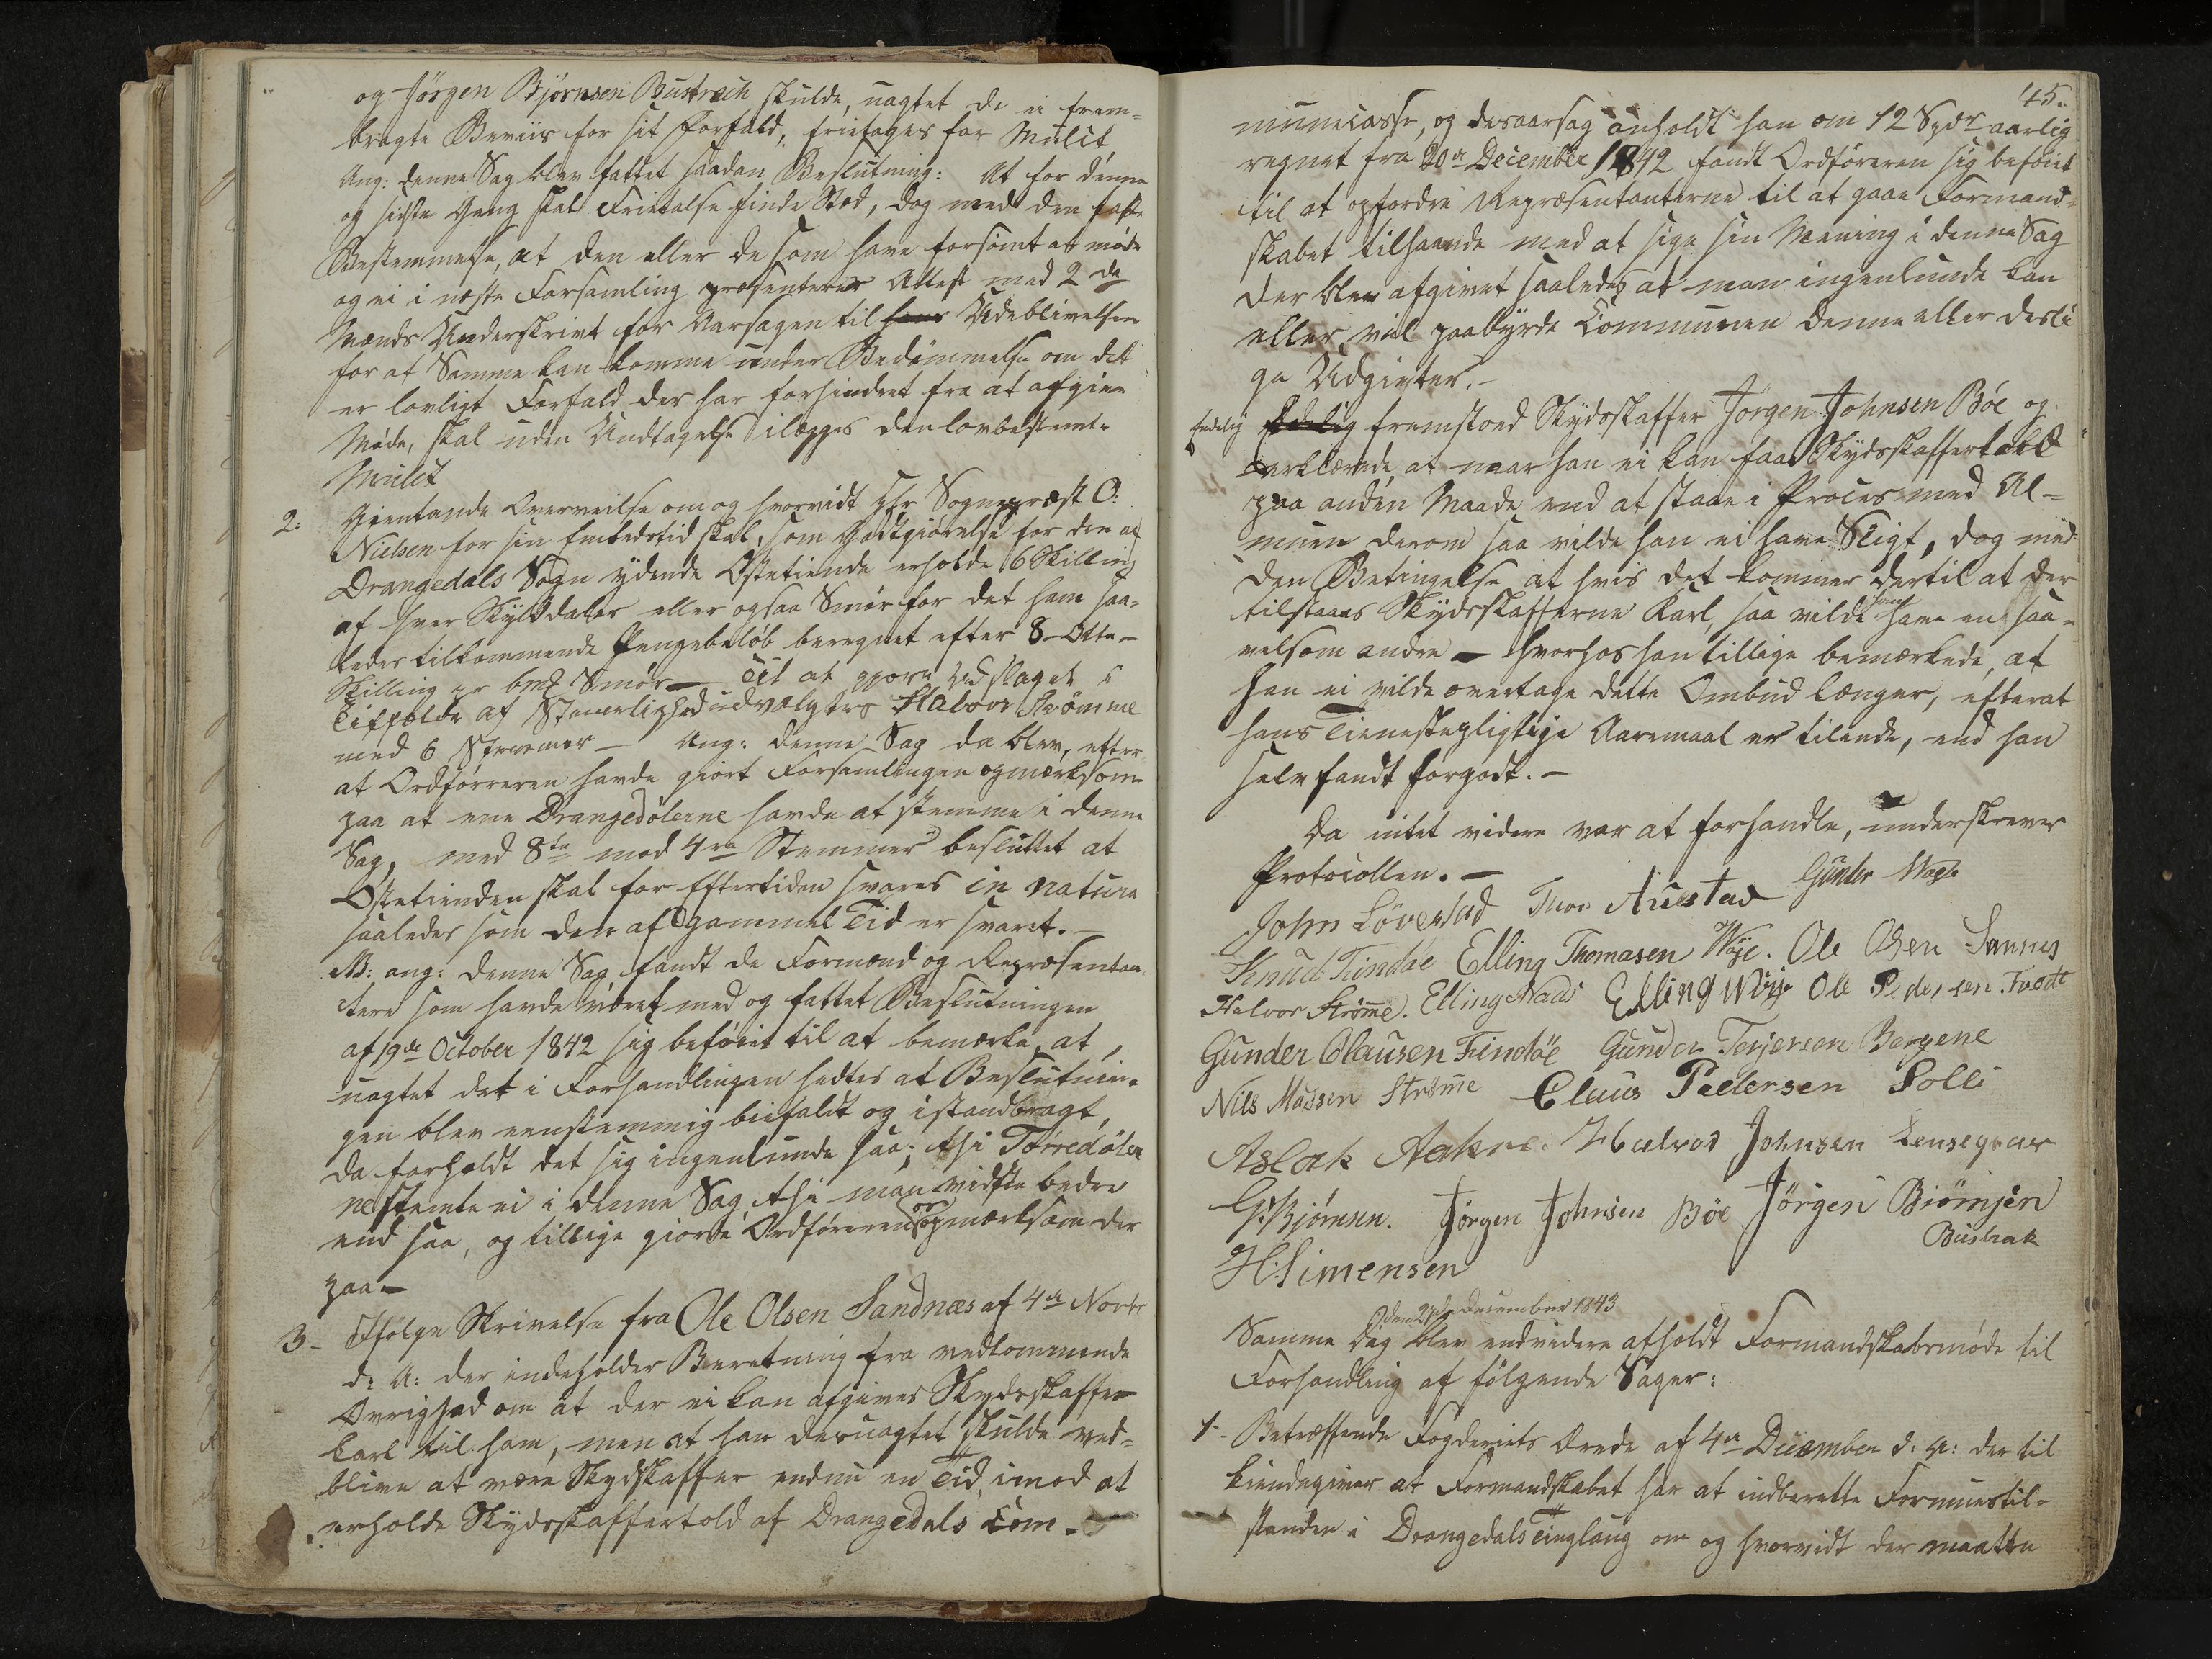 og Jörgen Björnsen Bustrach skulde, uagtet de ei frem-
bragte Beviis for sit Forfald, fritages for Mulct
Ang: denne Sag blev fattet saadan Beslutning: At for denne
og sidste Gang skal Fritalse finde Sted, dog med den faste
Bestemmelse, at den eller de som have forsömt at möde
og ei i næste Forsamling præsenterer Attest med 2de
Mænds Underskrivt for Aarsagen til Udeblivelsen
for at Samme kan komme under Bedömmelse om det
er lovligt Forfald der har forhindret fra at afgive
Möde, skal uden Undtagelse ilægges den lovbestemte
Mulct
2: Gientagende Overveielse om og hvorvidt Hr Sognepræst O:
Nielsen for sin Embedstid skal, som Godtgiörelse for den af
Drangedals Sogn ydende Ostetiende erholde 6 Skilling
af hver Skylddaler eller ogsaa Smör for det ham saa-
ledes tilkommende Pengebelöb beregnet efter 8-Otte-
Skilling pr bmk Smör — Til at gjöre Udslaget i
Tilfælde af Stemmelighed udvalgtes Halvor Strömme
med 6 Stemmer — Ang: denne Sag da blev, efter
at Ordförreren havde giort Forsamlingen opmærksom
paa at ene Drangedölerne havde at stemme i denne
Sag, med 8te mod 4re Stemmer besluttet at
Ostetienden skal for Eftertiden svares in natura
saaledes som den af gammel Tid er svaret. —
NB: ang: denne Sag fandt de Formænd og Repræsentan
tere som havde været med og fattet Beslutningen
af 19de October 1842 sig beföiet til at bemærke, at,
uagtet det i Forhandlingen hedtes at Beslutnin-
gen blev eenstemmig biefaldt og istandbragt,
da forholdt det sig ingenlunde saa; thi Törredöler
ne stemte ei i denne Sag, thi man vidste bedre
end saa, og tillige giorde Ordföreren opmærksom der
paa —
3- Ifölge Skrivelse fra Ole Olsen Sandnæs af 4de Novbr
d: A: der indeholder Beretning fra vedkommende
Övrighed om at der ei kan afgives Skydsskaffer
karl til ham, men at han desuagtet skulde ved-
blive at være Skydskaffer endnu en Tid, imod at
erholde Skydsskaffertold af Drangedals Com-
45.
municasse, og desaarsag anholdt han om 12 Spdr aarlig
regnet fra 20de December 1842 fandt Ordföreren sig beföiet
til at opfordre Repræsentanterne til at gaae Formand-
skabet tilhaande med at sige sin Mening i denne Sag
der blev afgivet saaledes at man ingenlunde kan
eller vil paabyrde Communen denne eller desli
ge Udgivter. —
Endelig fremstoed Skydsskaffer Jörgen Johnsen Böe og
erklærede, at naar han ei kan faae Skydsskafferkarl
paa anden Maade end at staae i Proces med Al-
muen derom saa vilde han ei have Sligt, dog med
den Betingelse at hvis det kommer dertil at der
tilstaaes Skydsskafferne Karl, saa vilde han have en saa-
velsom andre — hvorhos han tillige bemærkede, at
han ei vilde overtage dette Ombud længer, efterat
hans Tienestepligtige Aaremaal er tilende, end han
selv fandt forgodt. —
Da intet videre var at forhandle, underskrever
Protocollen. —
John Lövestad Thor Austad Gunder Woje
Knud Tindøe Elling Thomasen Woje. Ole Olsen Sannes
Halvor Strømme. Elling Naas Elling Wøije Ole Pedersen Froste
Gunder Clausen Findöe Gunder Terjersen Bergene
Nils Madsen Strømme Claus Pedersen Solli
Aslak Aakre. Halvor Johnsen Lensegrav
G: Bjørnsen. Jörgen Johnsen Böe Jörgen Biörnsen
Bustrak
H: Simensen
den 21de Desember 1843
Samme Dag blev endvidere afholdt Formandskabsmöde til
Forhandling af fölgende Sager:
1- Betræffende Fogderiets Brede af 4de December d: A: der til
kiendegiver at Formandskabet har at indberette Formuestil-
standen i Drangedals Tinglaug om og hvorvidt der maatte